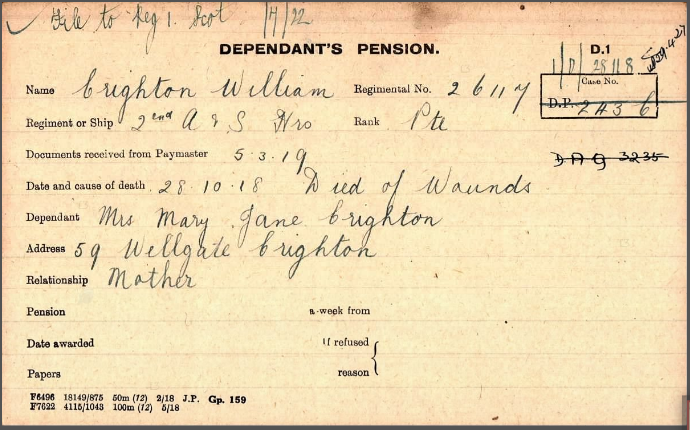 File to Reg 1. Scot 1/4/22
DEPENDANT'S PENSION. D.1
1/D/2811 8
Name Crighton William Regimental No. 26117 Case No.
D.P. 2436
Regiment or Ship 2nd A & S Hrs Rank Pte
Documents received from Paymaster 5.3.19 DAG 3235
Date and cause of death 28.10.18 Died of Wounds
Dependant Mrs Mary Jane Crighton
Address 59 Wellgate Crighton
Relationship Mother
Pension a-week from
Date awarded If refused
Papers reason
F6496 18149/875 50m (12) 2/18 J.P. Gp. 159
F7622 4115/1043 100m (12) 5/18